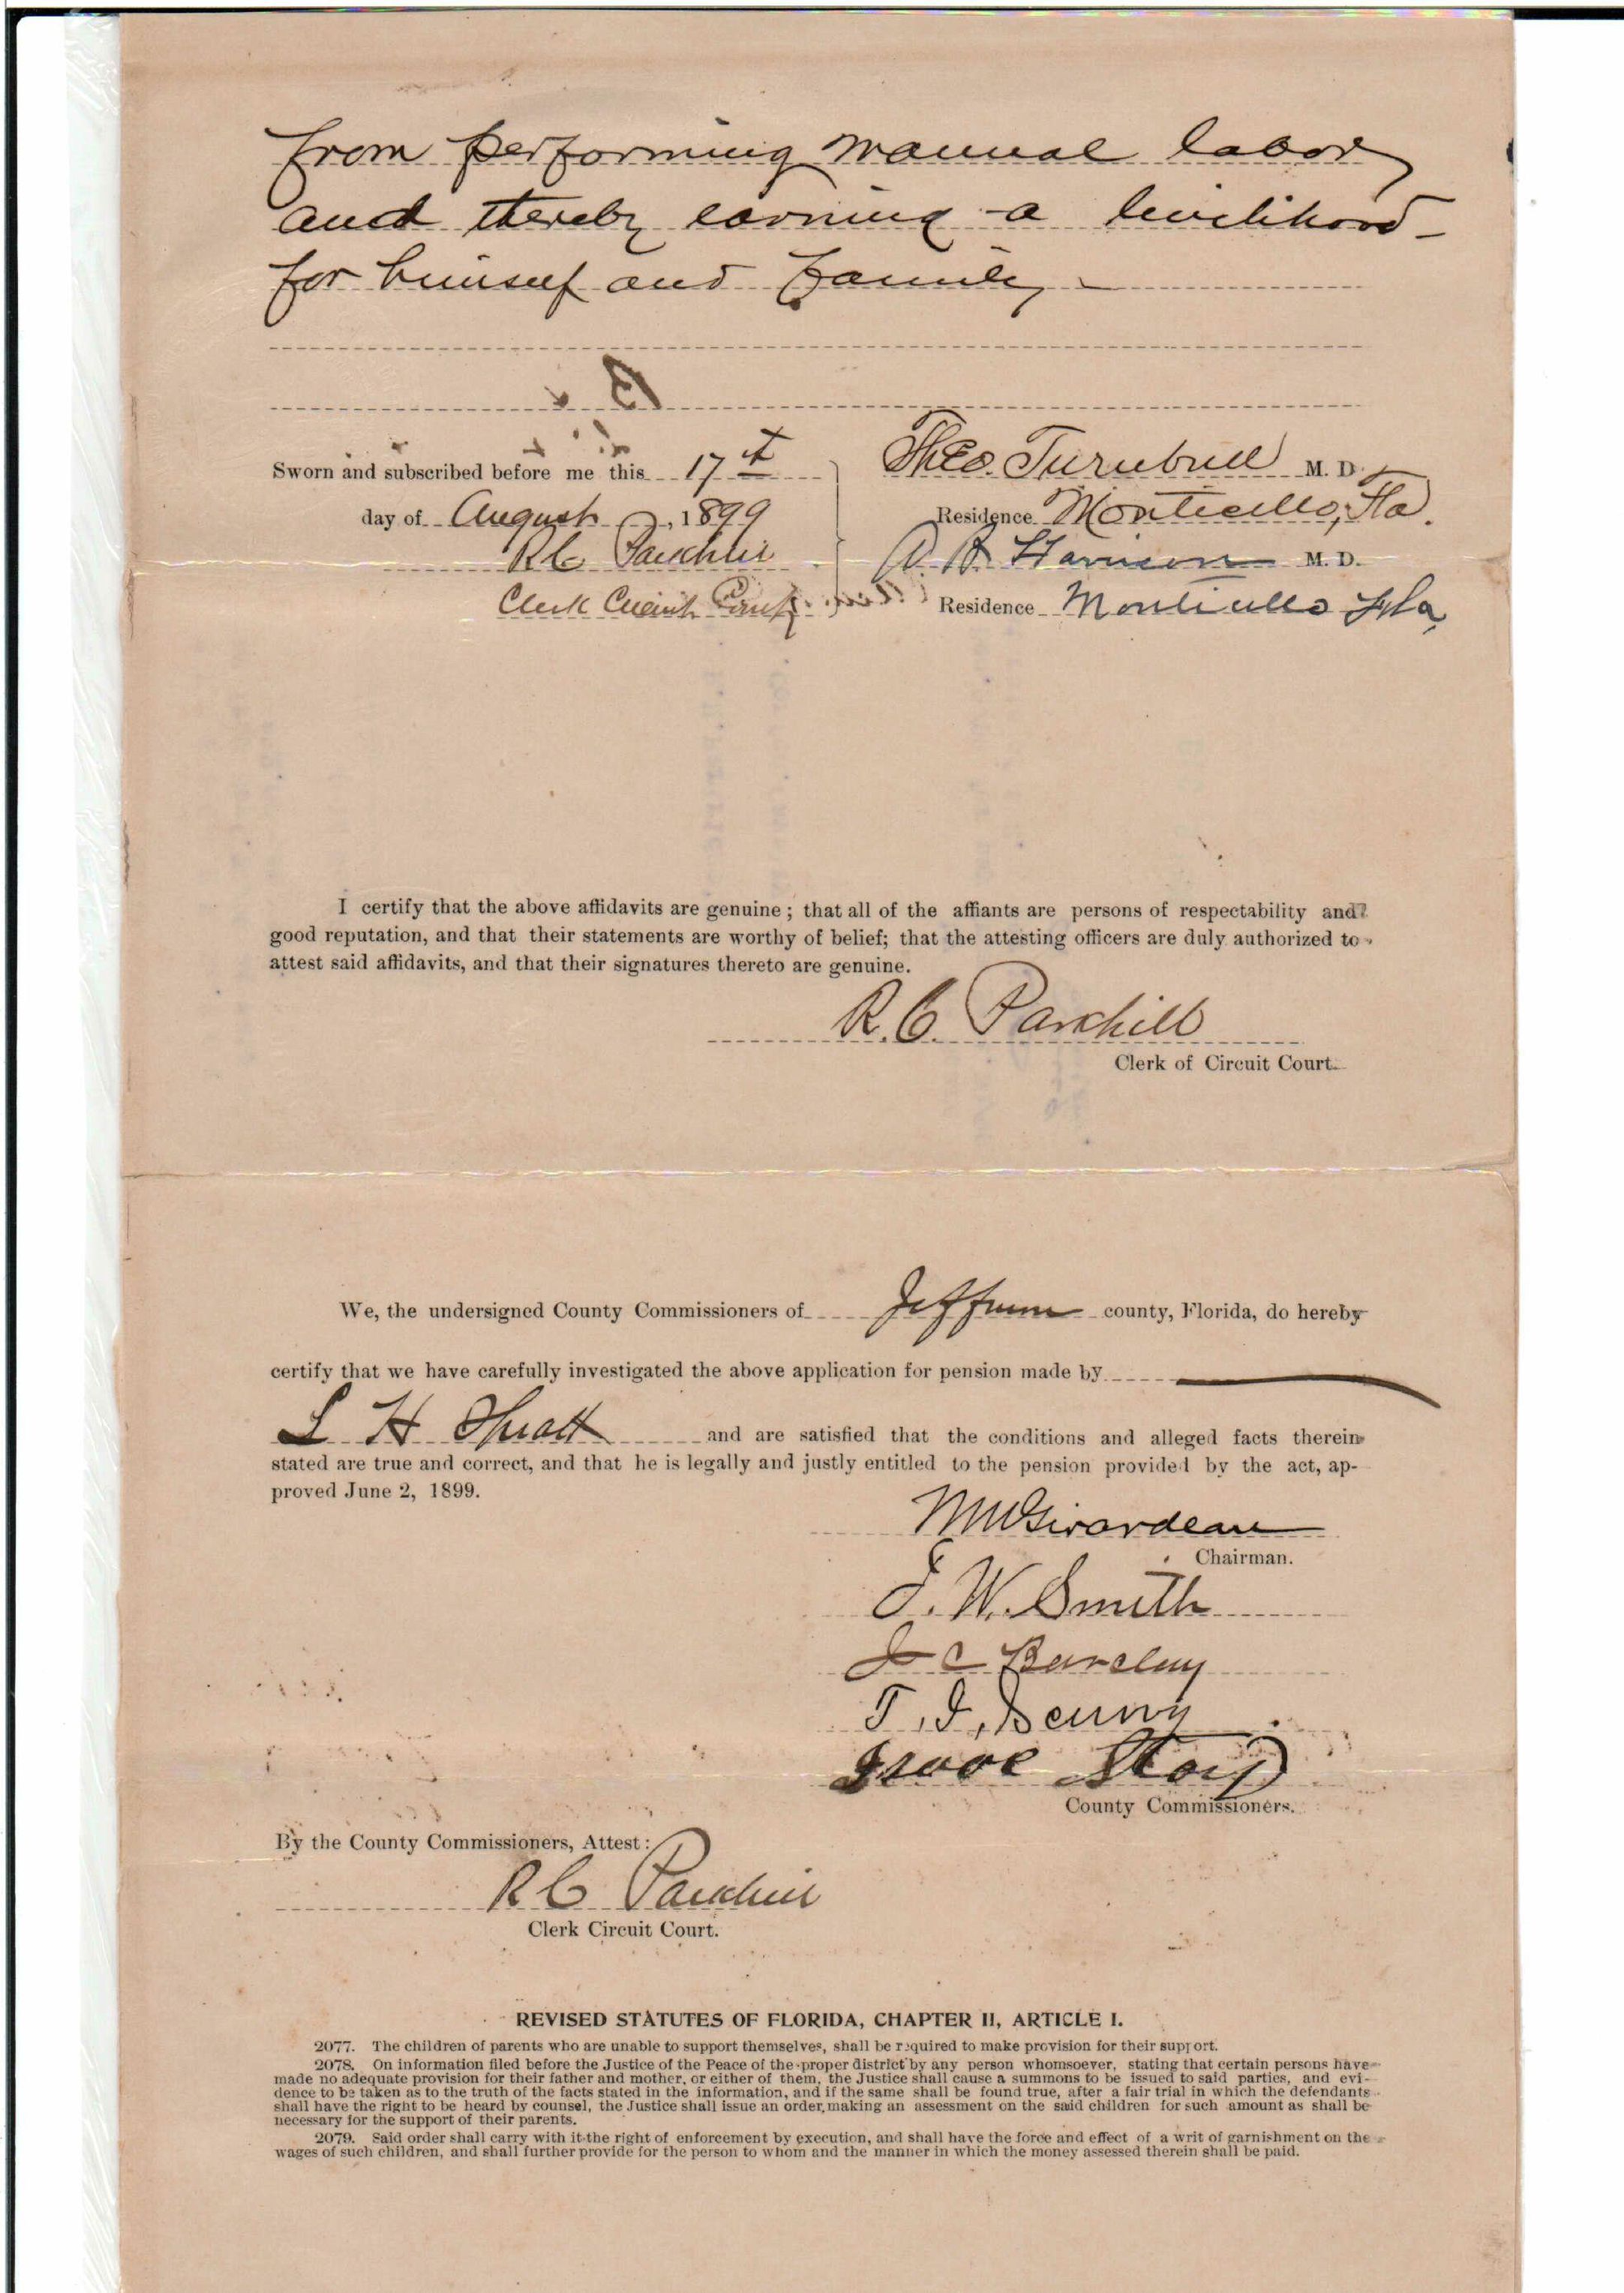 from performing manual labor
and thereby earning a livelihood
for himself and family
Sworn and subscribed before me this 17th
day of August, 1899
R C Parkhill
Clerk Circuit Court
Theo. Turnbull M. D.
Residence Monticello, Fla.
Harrison M. D.
Residence Monticello Fla,
I certify that the above affidavits are genuine; that all of the affiants are persons of respectability and
good reputation, and that their statements are worthy of belief; that the attesting officers are duly authorized to
attest said affidavits, and that their signatures thereto are genuine.
R. C. Parkhill
Clerk of Circuit Court.
We, the undersigned County Commissioners of Jefferson county, Florida, do hereby
certify that we have carefully investigated the above application for pension made by
L H and are satisfied that the conditions and alleged facts therein
stated are true and correct, and that he is legally and justly entitled to the pension provided by the act, ap-
proved June 2, 1899.
Girardeau
Chairman.
W. Smith
J C Barclay
County Commissioners.
By the County Commissioners, Attest:
R C Parkhill
Clerk Circuit Court.
REVISED STATUTES OF FLORIDA, CHAPTER II, ARTICLE I.
2077. The children of parents who are unable to support themselves, shall be required to make provision for their support.
2078. On information filed before the Justice of the Peace of the proper district by any person whomsoever, stating that certain persons have
made no adequate provision for their father and mother, or either of them, the Justice shall cause a summons to be issued to said parties, and evi-
dence to be taken as to the truth of the facts stated in the information, and if the same shall be found true, after a fair trial in which the defendants
shall have the right to be heard by counsel, the Justice shall issue an order, making an assessment on the said children for such amount as shall be
necessary for the support of their parents.
2079. Said order shall carry with it the right of enforcement by execution, and shall have the force and effect of a writ of garnishment on the
wages of such children, and shall further provide for the person to whom and the manner in which the money assessed therein shall be paid.